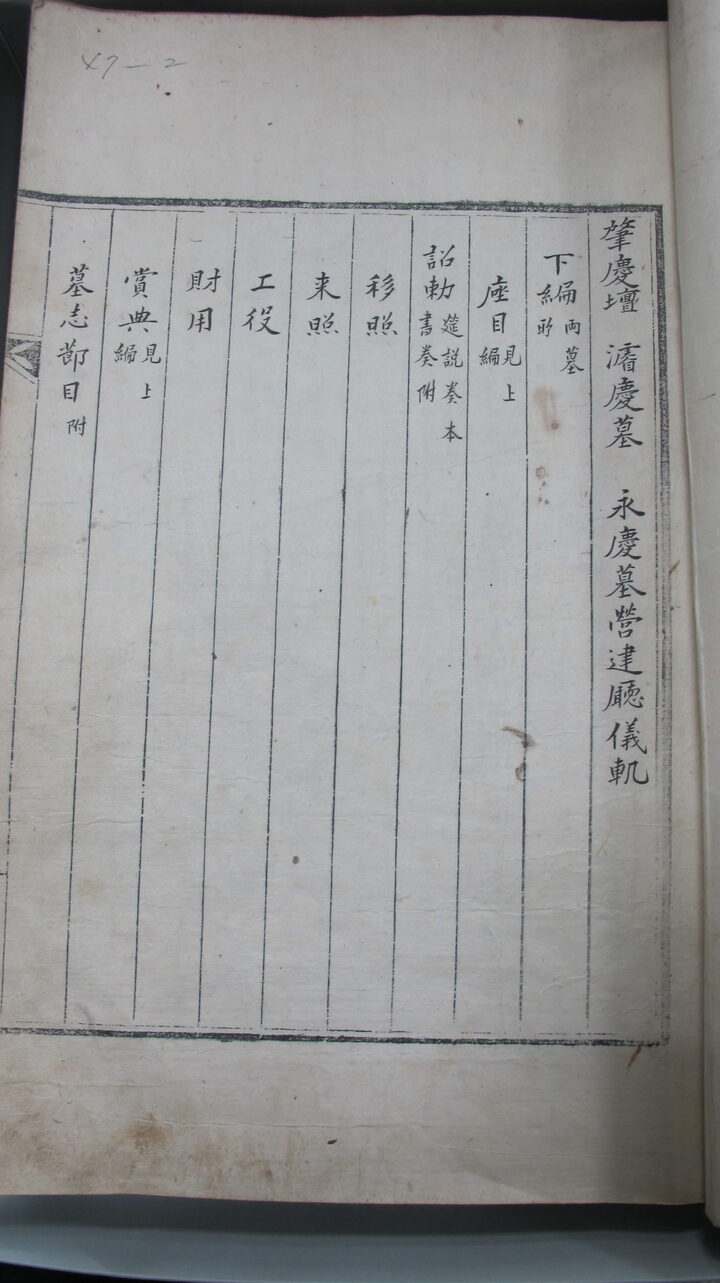 47-2
肇慶壇 濬慶墓 永慶墓營建廳儀軌
下編 兩墓所
座目 見上編
詔勅 筵說奏本書奏附
移照
来照
工役
財用
賞典 見上編
墓志節目 附